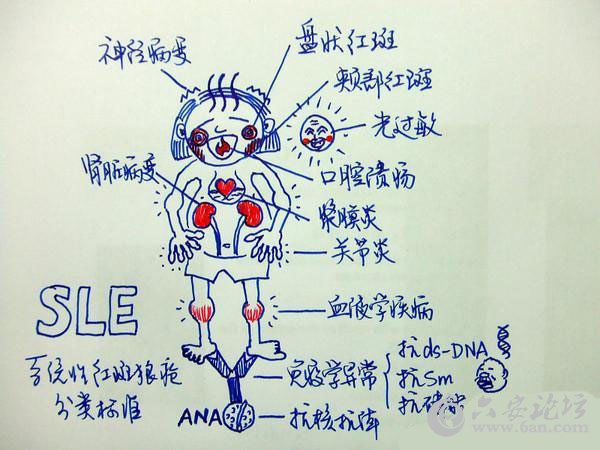 神经病变
盘状红斑
颊部红斑
光过敏
肾脏病变
口腔溃疡
浆膜炎
关节炎
SLE
系统性红斑狼疮
分类标准
血液学疾病
免疫学异常
抗ds-DNA
抗Sm
抗磷脂
ANA
抗核抗体
六安论坛
www.6an.com